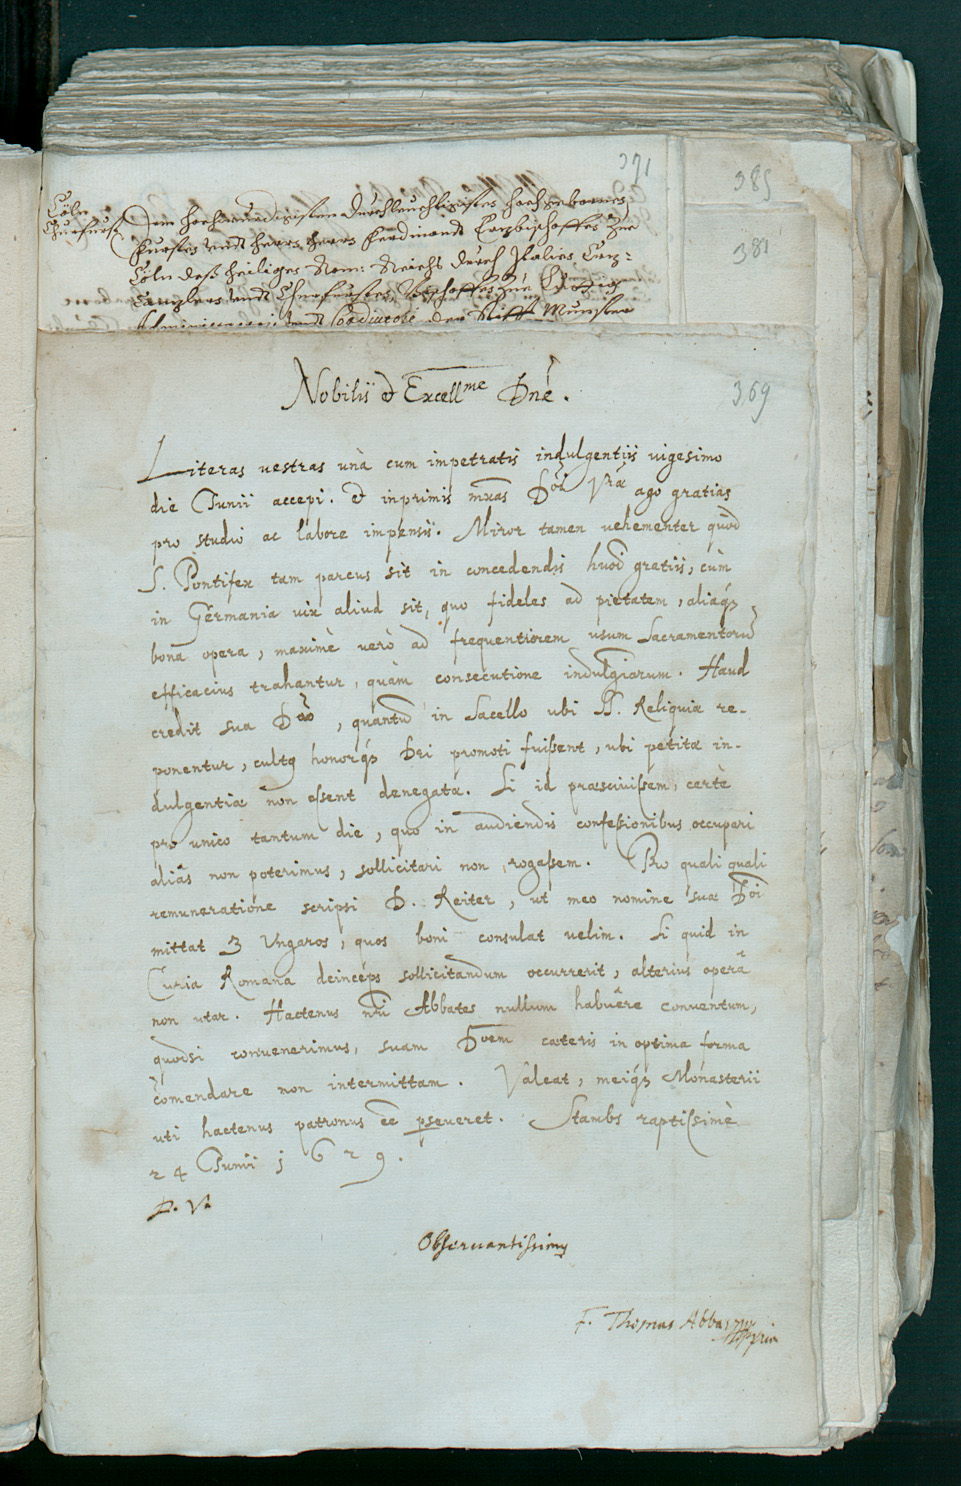 371
385
381
Cöln
Churfürst
Dem Hochwürdigisten Durchleuchtigisten Hochgebornen
Fürsten undt Herrn Herrn Ferdinandt Erzbischoffen Zue
Cöln deß heiligen Röm: Reichs durch Italien Erz-
Canzlern undt Churfürsten, Bischoffen zue
undt Coadiutorn der Stifft Münster
369
Nobilis et Excell.me Dne.
Literas vestras unà cum impetratis indulgentiis vigesimo
die Junii accepi. et inprimis mxãs Doi Vrã ago gratias
pro studio ac labore impensis. Miror tamen vehementer quòd
S. Pontifex tam parcus sit in concedendis huõd gratiis, cùm
in Germania vix aliud sit, quo fideles ad pietatem, aliaqꝫ
bona opera, maximè verò ad frequentiorem usum Sacramentorũ
efficacius trahantur, quàm consecutione indulgẽiarum. Haud
credit sua Dão, quantũ in Sacello ubi SS. Reliquiæ re-
ponentur, cultꝰ honorqꝫ Dei promoti fuissent, ubi petitæ in-
dulgentiæ non essent denegatæ. Si id præscivissem, certè
pro unico tantum die, quo in audiendis confessionibus occupari
aliàs non poterimus, sollicitari non rogassem. Pro quali quali
remuneratione scripsi D. Reiter, ut meo nomine suæ Dõi
mittat 3 Ungaros, quos boni consulat velim. Si quid in
Curia Romana deinceps sollicitandum occurrerit, alterius operâ
non utar. Hactenus nri Abbates nullum habuêre conventum,
quodsi convenerimus, suam Doem cæteris in optima forma
cõmendare non intermittam. Valeat, meiqꝫ Monasterii
uti hactenus patronus eẽ pseveret. Stambs raptissimè
24 Junii 1629.
D. Væ
Observantissimꝰ
F. Thomas Abbas mppria